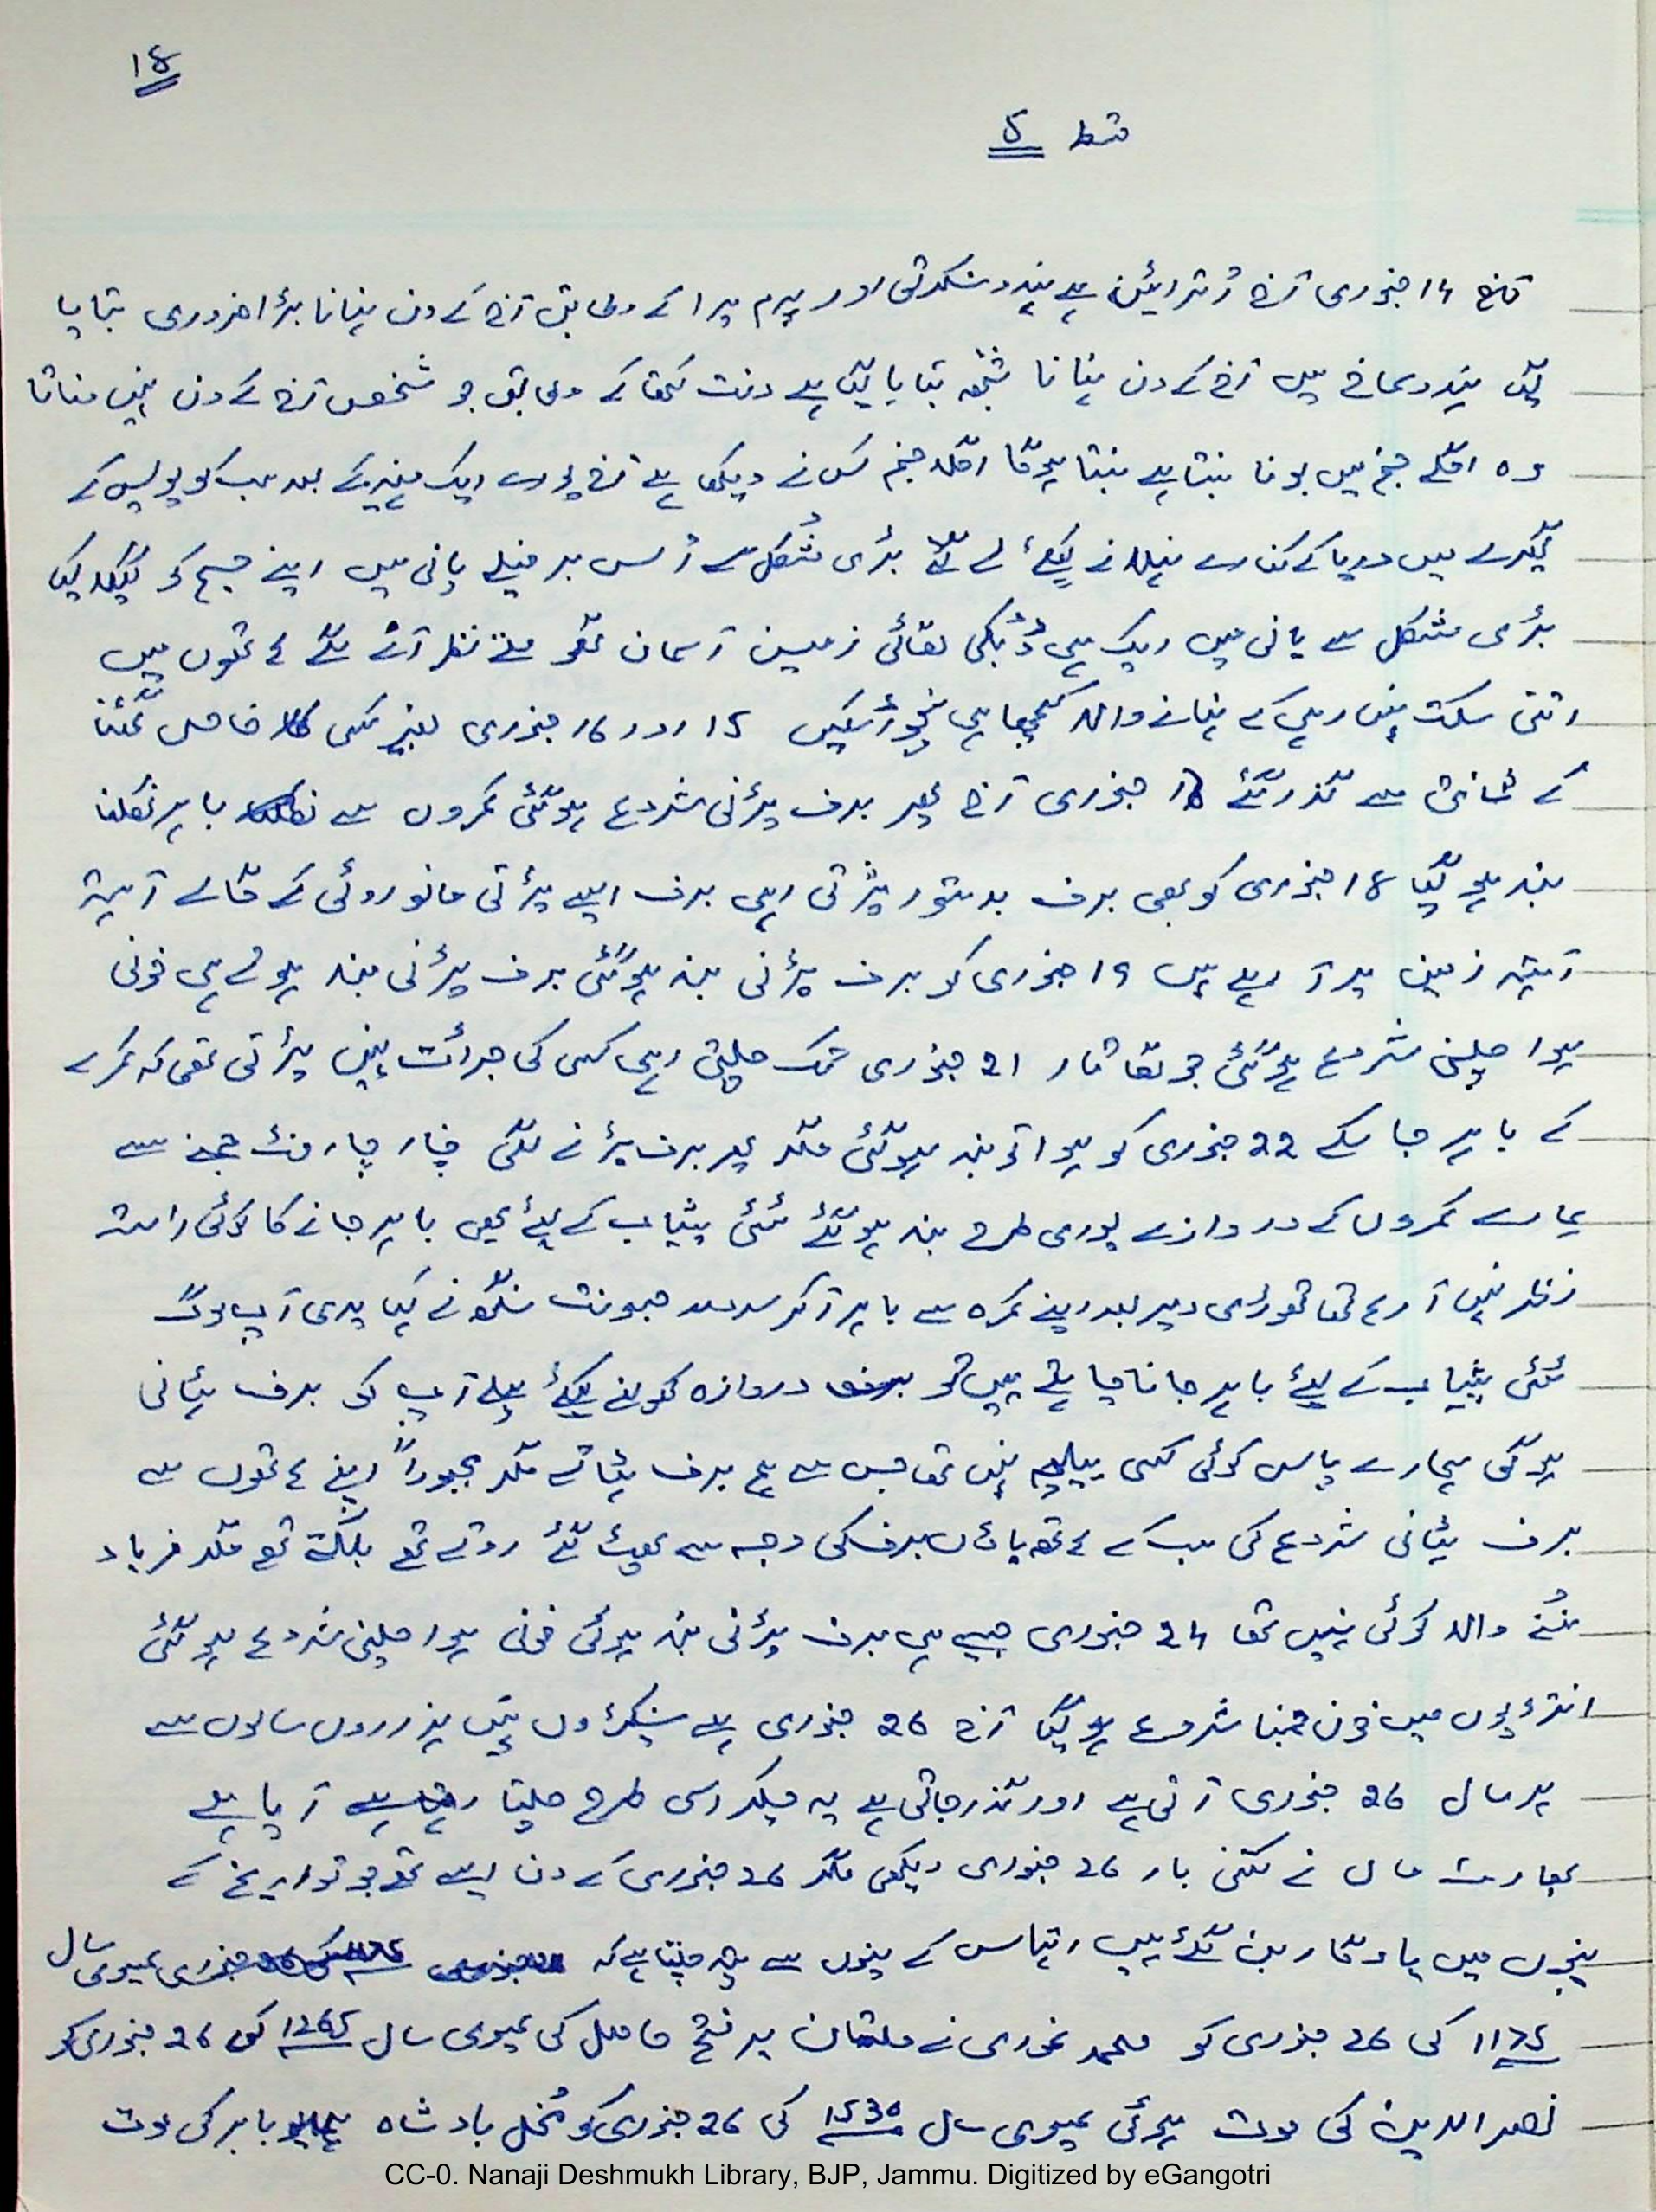 18
قسط 5
14 جنوری آج اُترایئن ہے ہندو سنسکرتی اور پرم پرا کے مطابق آج کے دن نہانا بڑا ضروری بتایا
گیا ہندو سماج میں آج کے دن نہانا شُبھ بتایا گیا ہے دنت کتھا کے مطابق جو شخص آج کے دن نہیں نہاتا
وہ اگلے جنم میں بنتا ہے بنتا ہوگا اگلا جنم کس نے دیکھا ہے آج پورے ایک مہینہ کے بعد سب کو پولیس کے
گھیرے میں دریا کے کنارے نہلانے کیلئے لے گئے بڑی مُشکل سے اُس برفیلے پانی میں اپنے جسم کو گیلا کیا
بڑی مشکل سے پانی میں ایک ہی ڈُبکی لگائی زمین آسمان گھومتے نظر آنے لگے ہاتھوں میں
اتنی سکت نہیں رہی کہ نہانے والا کچھا ہی نچوڑ سکیں 15 اور 16 جنوری بغیر کسی خاص گھٹنا
کے شانتی سے گذر گئے 17 جنوری آج پھر برف پڑنی شروع ہوگئی کمروں سے باہر نکلنا
بند ہو گیا 18 جنوری کو بھی برف بدستور پڑتی رہی برف ایسے پڑتی مانو روئی کے گالے آہستہ
آہستہ زمین پر آ رہے ہیں 19 جنوری کو برف پڑنی بند ہوگئی برف پڑنی بند ہوتے ہی خونی
ہوا چلنی شروع ہوگئی جو لگاتار 21 جنوری تک چلتی رہی کسی کی جرائت نہیں پڑتی تھی کہ کمرے
کے باہر جا سکے 22 جنوری کو ہوا تو بند ہوگئی مگر پھر برف پڑنے لگی چار چار فٹ جمنے سے
ہمارے کمروں کے دروازے پوری طرح بند ہو گئے ٹٹی پیشاب کے لیئے بھی باہر جانے کا کوئی راستہ
نظر نہیں آ رہا تھا تھوڑی دیر بعد اپنے کمرہ سے باہر آکر سردار جبونت سنگھ نے کہا پدی آپ لوگ
ٹٹی پیشاب کے لیئے باہر جانا چاہتے ہیں تو دروازہ کھولنے کیلئے پہلے آپ کو برف ہٹانی
ہوگی ہمارے پاس کوئی کسی بیلچہ نہیں تھا جس سے ہم برف ہٹاتے مگر مجبوراً اپنے ہاتھوں سے
برف ہٹانی شروع کی سب کے ہاتھ پاؤں برف کی وجہ سے پھٹ گئے روتے تھے بلکتے تھے مگر فریاد
سُننے والا کوئی نہیں تھا 24 جنوری جیسے ہی برف پڑنی بند ہوئی خونی ہوا چلنی شروع ہو گئی
انتڑیوں میں خون جمنا شروع ہو گیا آج 26 جنوری ہے سینکڑوں نہیں ہزاروں سالوں سے
ہر سال 26 جنوری آتی ہے اور گذر جاتی ہے یہ چکر اسی طرح چلتا رہتا ہے آیا ہے
بھارت ماں نے کتنی بار 26 جنوری دیکھی مگر 26 جنوری کے دن ایسے تھے جو تواریخ کے
پنوں میں یادگار بن گئے ہیں اتہاس کے پنوں سے پتہ چلتا ہے کہ عیسوی سال
1175 کی 26 جنوری کو محمد غوری نے ملتان پر فتح حاصل کی عیسوی سال 1265 کی 26 جنوری کو
نصیر الدین کی موت ہوئی عیسوی سال 1530 کی 26 جنوری کو مُغل بادشاہ بابر کی موت
CC-0. Nanaji Deshmukh Library, BJP, Jammu. Digitized by eGangotri